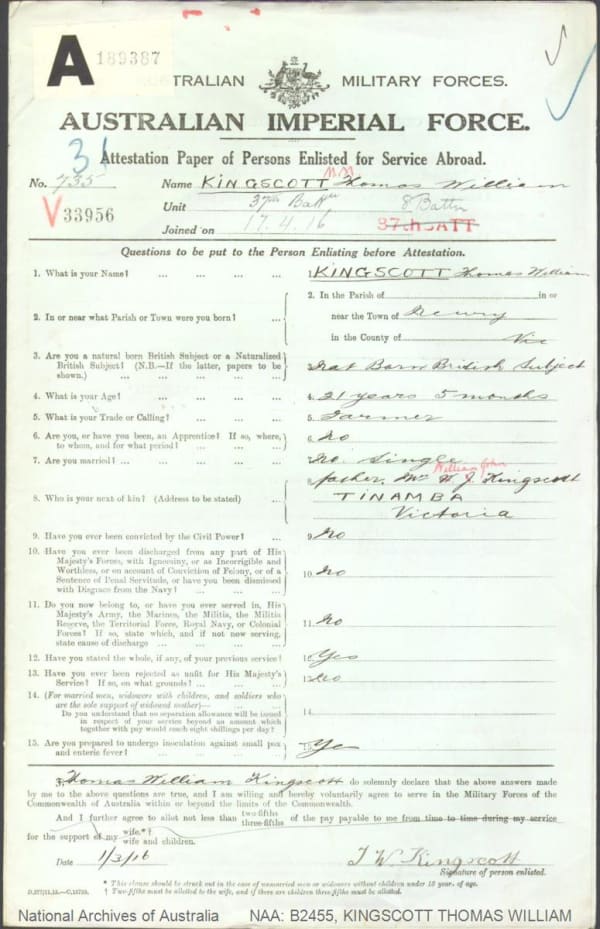 A 189387
TRALIAN MILITARY FORCES.
AUSTRALIAN IMPERIAL FORCE.
31
Attestation Paper of Persons Enlisted for Service Abroad.
No. 735 Name KINGSCOTT MM Thomas William
V33956 Unit 37th Battn 8 Battn
Joined on 17.4.16 37th BATT
Questions to be put to the Person Enlisting before Attestation.
1. What is your Name? ... ... ... ... 1. KINGSCOTT Thomas William
2. In or near what Parish or Town were you born? ... 2. In the Parish of in or
near the Town of Newry
in the County of Vic
3. Are you a natural born British Subject or a Naturalized
British Subject? (N.B.—If the latter, papers to be
shown.) ... ... ... ... ... 3. Nat Born British Subject
4. What is your Age? ... ... ... ... 4. 21 years 5 months
5. What is your Trade or Calling? ... ... ... 5. Farmer
6. Are you, or have you been, an Apprentice? If so, where,
to whom, and for what period? ... ... ... 6. No
7. Are you married? ... ... ... ... ... 7. No. Single
William John
8. Who is your next of kin? (Address to be stated) ... 8. father. Mr W. J. Kingscott
TINAMBA
Victoria
9. Have you ever been convicted by the Civil Power? ... 9. No
10. Have you ever been discharged from any part of His
Majesty's Forces, with Ignominy, or as Incorrigible and
Worthless, or on account of Conviction of Felony, or of a
Sentence of Penal Servitude, or have you been dismissed
with Disgrace from the Navy? ... ... ... 10. No
11. Do you now belong to, or have you ever served in, His
Majesty's Army, the Marines, the Militia, the Militia
Reserve, the Territorial Force, Royal Navy, or Colonial
Forces? If so, state which, and if not now serving,
state cause of discharge ... ... ... ... 11. No
12. Have you stated the whole, if any, of your previous service? 12. Yes
13. Have you ever been rejected as unfit for His Majesty's
Service? If so, on what grounds? ... ... ... 13. No
14. (For married men, widowers with children, and soldiers who
are the sole support of widowed mother)—
Do you understand that no separation allowance will be issued
in respect of your service beyond an amount which
together with pay would reach eight shillings per day? 14.
15. Are you prepared to undergo inoculation against small pox
and enteric fever? ... ... ... ... 15. Yes
I, Thomas William Kingscott do solemnly declare that the above answers made
by me to the above questions are true, and I am willing and hereby voluntarily agree to serve in the Military Forces of the
Commonwealth of Australia within or beyond the limits of the Commonwealth.
And I further agree to allot not less than two-fifths three-fifths of the pay payable to me from time to time during my service
for the support of my wife.*† wife and children.
Date 1/3/16 T W Kingscott
Signature of person enlisted.
* This clause should be struck out in the case of unmarried men or widowers without children under 18 year of age.
† Two-fifths must be allotted to the wife, and if there are children three-fifths must be allotted.
National Archives of Australia NAA: B2455, KINGSCOTT THOMAS WILLIAM